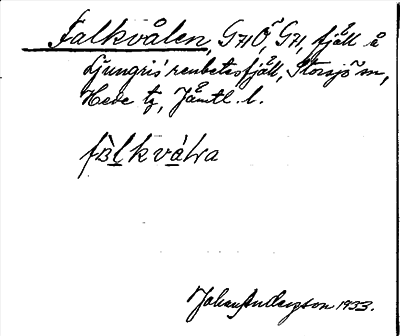 Falkvålen, GHÖ, GH, fjäll å
Ljungris renbetesfjäll, Storsjö sn,
Hede tg, Jämtl. l.
fàlkválɴa
Johan Anderzson 1933.